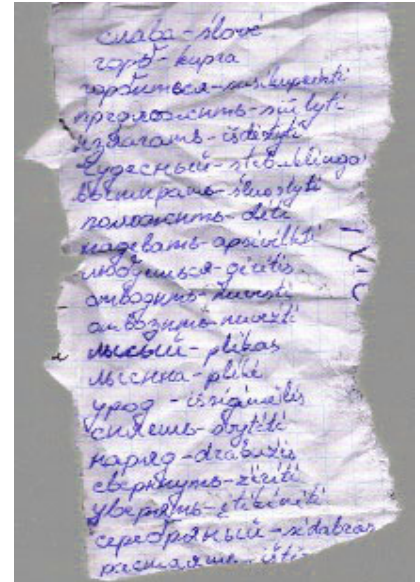 слава - šlovė
горб - kupra
горбиться - susikuprinti
предложить - siūlyti
излагать - išdėstyti
чудесный - stebuklingas
вытирать - šluostyti
положить - dėti
надевать - apsivilkti
любоваться - gėrėtis
отводить - nuvesti
отвозить - nuvežti
лысый - plikas
лысина - plikė
урод - išsigimėlis
сиять - švytėti
наряд - drabužis
сверкнуть - žėrėti
уверять - įtikinėti
серебряный - sidabras